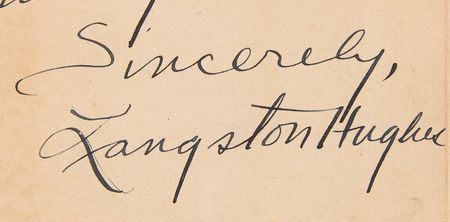 Sincerely,
Langston Hughes